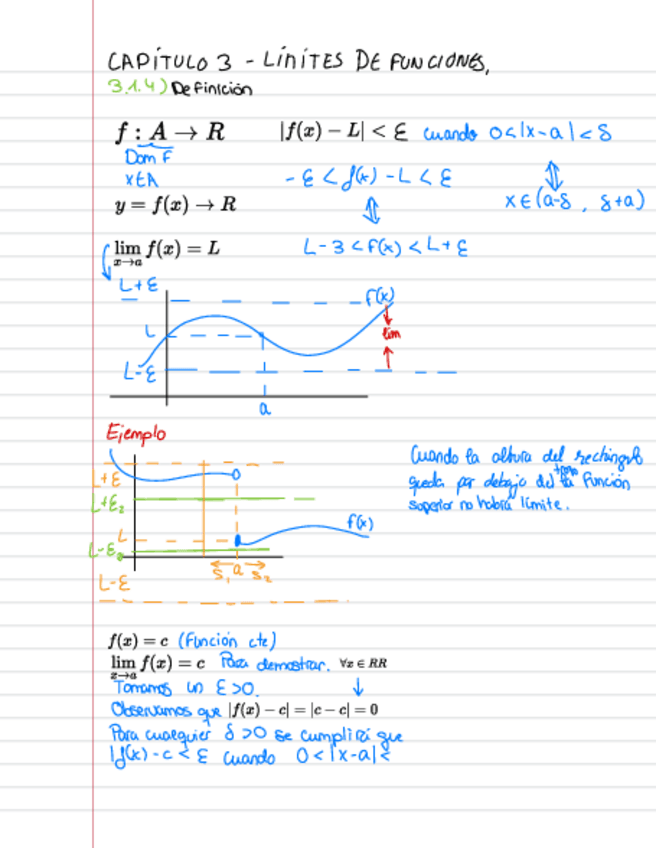 CAPÍTULO 3 - LÍMITES DE FUNCIONES.
3.1.4) Definición
f : A → R |f(x) − L| < Ɛ cuando 0<|x-a|<δ
Dom F
x∈A - Ɛ < f(x) - L < Ɛ ⇕
y = f(x) → R ⇕ x∈(a-δ , δ+a)
lim f(x) = L L-3 < f(x) < L+Ɛ
x→a
L+Ɛ
f(x)
L lim
L-Ɛ
a
Ejemplo
Cuando la altura del rectángulo
L+Ɛ queda por debajo del tramo función
L+Ɛ₂ superior no habrá límite.
f(x)
L
L-Ɛ₂
δ₁ a δ₂
L-Ɛ
f(x) = c (Función cte)
lim f(x) = c Para demostrar. ∀x ∈ RR
x→a
Tomamos un Ɛ>0. ↓
Observamos que |f(x) − c| = |c − c| = 0
Para cualquier δ>0 se cumplirá que
|f(x)-c < Ɛ cuando 0<|x-a|<